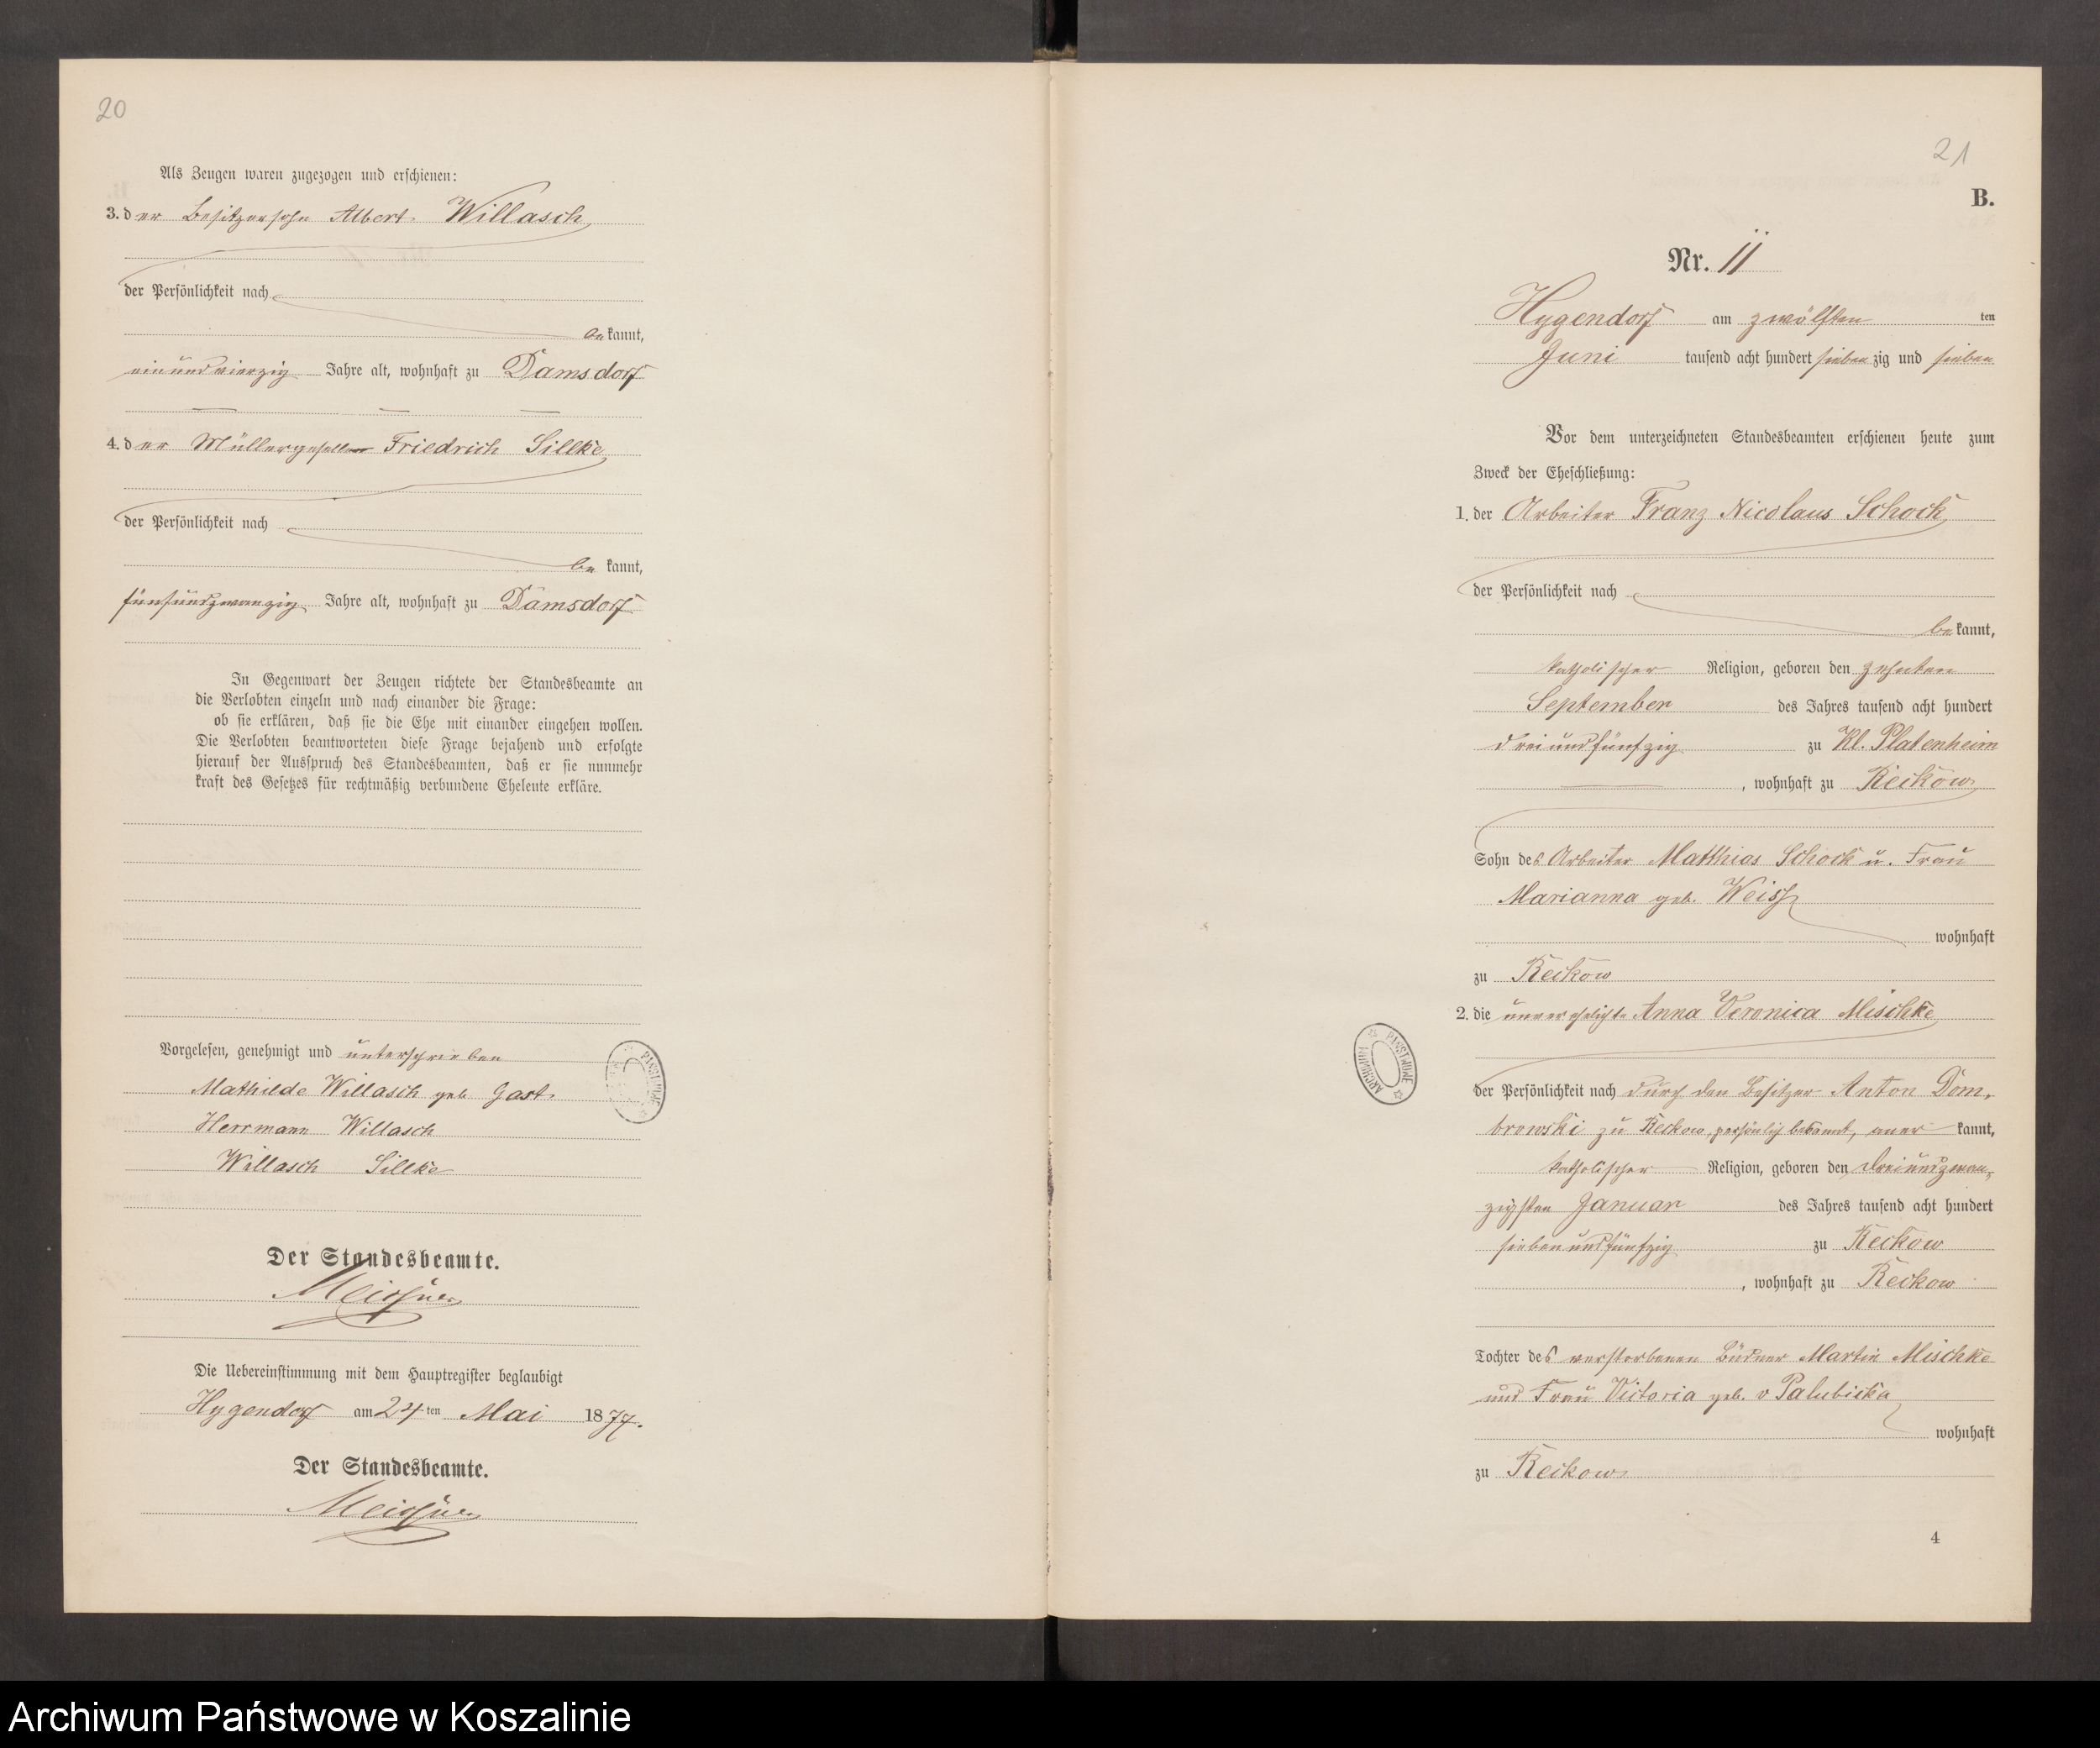 20
Als Zeugen waren zugezogen und erschienen:
3. der Besitzersohn Albert Willasch
der Persönlichkeit nach
bekannt,
einundvierzig Jahre alt, wohnhaft zu Damsdorf
4. der Müllergeselle Friedrich Sillke
der Persönlichkeit nach
be kannt,
fünfundzwanzig Jahre alt, wohnhaft zu Damsdorf
In Gegenwart der Zeugen richtete der Standesbeamte an
die Verlobten einzeln und nach einander die Frage:
ob sie erklären, daß sie die Ehe mit einander eingehen wollen.
Die Verlobten beantworteten diese Frage bejahend und erfolgte
hierauf der Ausspruch des Standesbeamten, daß er sie nunmehr
kraft des Gesetzes für rechtmäßig verbundene Eheleute erkläre.
Vorgelesen, genehmigt und unterschrieben
Mathilde Willasch geb. Gast
Herrmann Willasch
Willasch Sillke
Der Standesbeamte.
Meissner
Die Uebereinstimmung mit dem Hauptregister beglaubigt
Hygendorf am 24 ten Mai 1877.
Der Standesbeamte.
Meissner
21
B.
Nr. 11
Hygendorf am zwölften ten
Juni tausend acht hundert siebenzig und sieben
Vor dem unterzeichneten Standesbeamten erschienen heute zum
Zweck der Eheschließung:
1. der Arbeiter Franz Nicolaus Schock
der Persönlichkeit nach
bekannt,
katholischer Religion, geboren den zehnten
September des Jahres tausend acht hundert
dreiundfünfzig zu Kl. Platenheim
, wohnhaft zu Reckow
Sohn des Arbeiter Matthias Schock u. Frau
Marianna geb. Weiss
wohnhaft
zu Reckow
2. die unverehelichte Anna Veronica Mischke
der Persönlichkeit nach durch den Besitzer Anton Dom-
browski zu Reckow, persönlich bekannt, aner kannt,
katholischer Religion, geboren den dreiundzwan-
zigsten Januar des Jahres tausend acht hundert
siebenundfünfzig zu Reckow
, wohnhaft zu Reckow
Tochter des verstorbenen Büdner Martin Mischke
und Frau Victoria geb. v Palubicka
wohnhaft
zu Reckow
4
ARCHIWUM PAŃSTWOWE
Archiwum Państwowe w Koszalinie